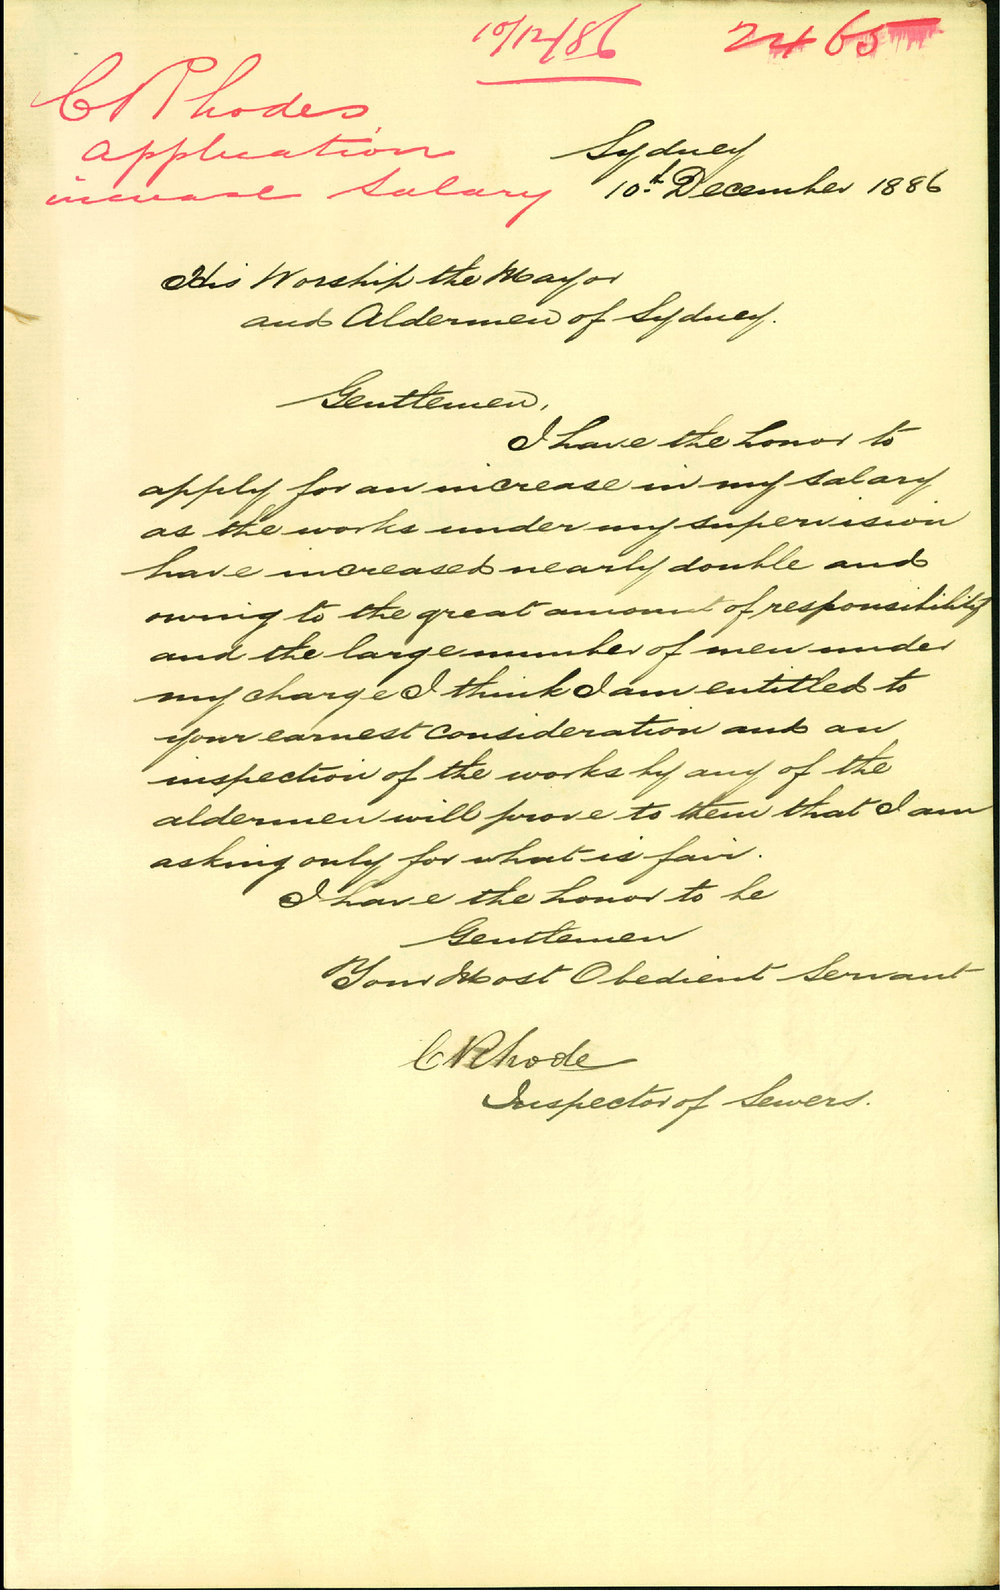 10/12/86 2465
C Rhodes
application
increase Salary
Sydney
10th December 1886
His Worship the Mayor
and Aldermen of Sydney.
Gentlemen,
I have the honor to
apply for an increase in my salary
as the works under my supervision
have increased nearly double and
owing to the great amount of responsibility
and the large number of men under
my charge I think I am entitled to
your earnest consideration and an
inspection of the works by any of the
aldermen will prove to them that I am
asking only for what is fair.
I have the honor to be
Gentlemen
Your Most Obedient Servant
C Rhode
Inspector of Sewers.